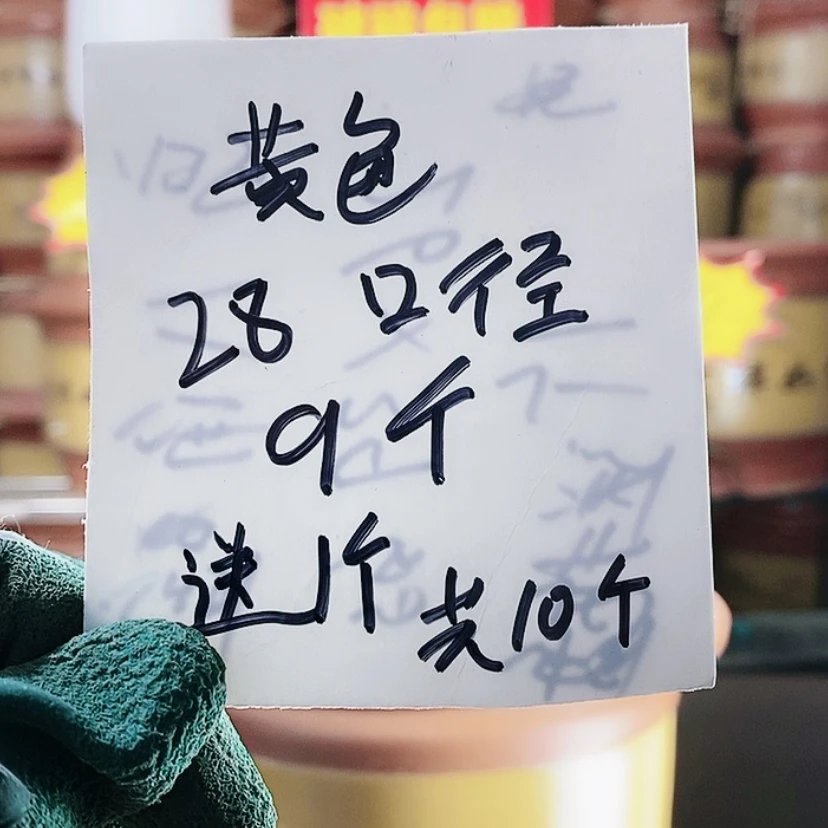 黄色
28 口径
9个
送1个 共10个